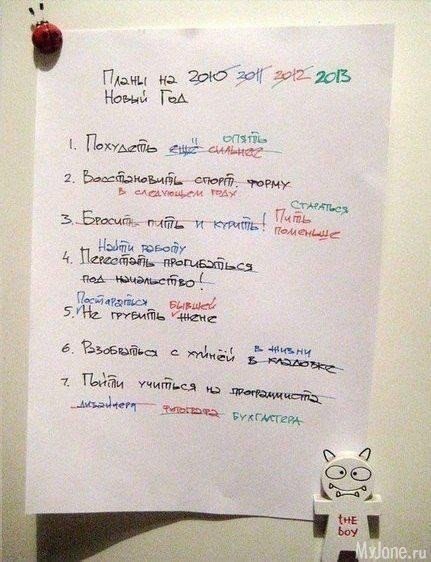 Планы на 2010 2011 2012 2013
Новый Год
опять
1. Похудеть ещё сильнее
2. Восстановить спорт. форму
в следующем году
стараться
3. Бросить пить и курить! Пить
поменьше
Найти работу
4. Перестать прогибаться
под начальство!
Постараться бывшей
5. Не грубить жене
6. Разобраться с хуйнёй в жизни
в кладовке
7. Пойти учиться на программиста
дизайнера фотографа бухгалтера
the
boy
MxJone.ru